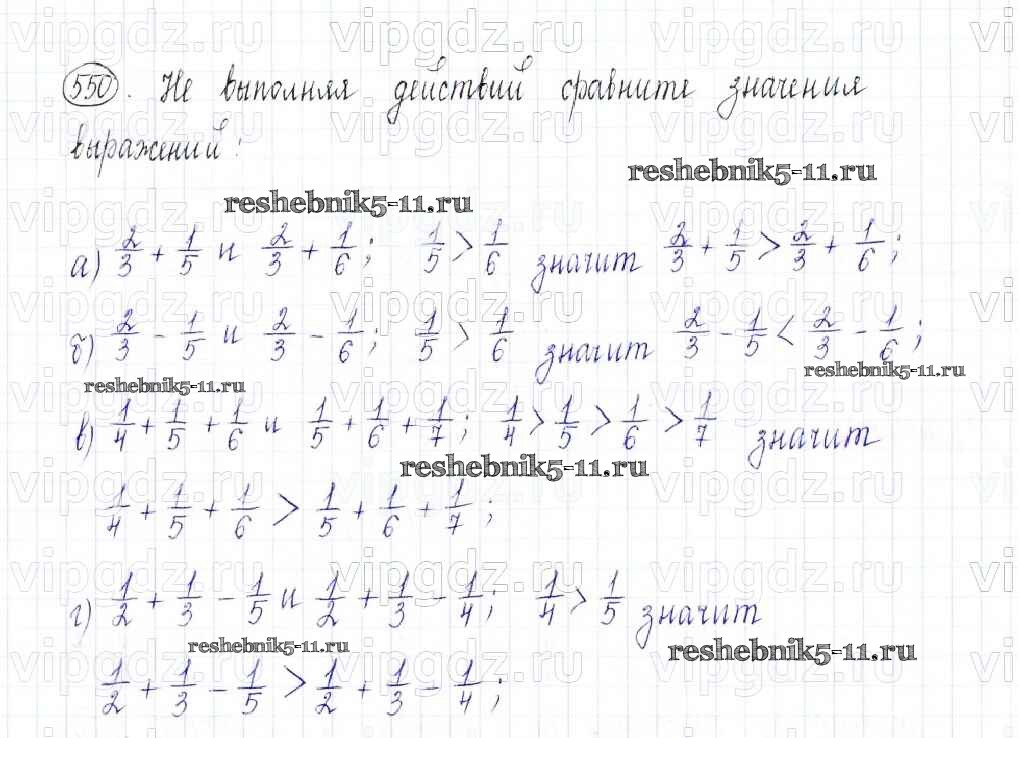 550. Не выполняя действий сравните значения
выражений:
reshebnik5-11.ru
reshebnik5-11.ru
а) 2/3 + 1/5 и 2/3 + 1/6; 1/5 > 1/6 значит 2/3 + 1/5 > 2/3 + 1/6;
б) 2/3 - 1/5 и 2/3 - 1/6; 1/5 > 1/6 значит 2/3 - 1/5 < 2/3 - 1/6;
reshebnik5-11.ru
reshebnik5-11.ru
в) 1/4 + 1/5 + 1/6 и 1/5 + 1/6 + 1/7; 1/4 > 1/5 > 1/6 > 1/7 значит
reshebnik5-11.ru
1/4 + 1/5 + 1/6 > 1/5 + 1/6 + 1/7;
г) 1/2 + 1/3 - 1/5 и 1/2 + 1/3 - 1/4; 1/4 > 1/5 значит
reshebnik5-11.ru
reshebnik5-11.ru
1/2 + 1/3 - 1/5 > 1/2 + 1/3 - 1/4;
vipgdz.ru